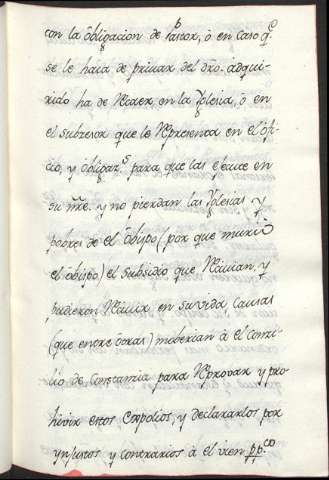 con la obligacion de Pastor, ò en caso q.^e
se le haia de privar del dro. adqui-
rido ha de Recaer en la Yglesia, ò en
el subcesor que le Representa en el ofi-
cio, y obligaz.^s para que las execute en
su n̄re. y no pierdan las Yglesias y
pobres de el obispo (por que muriò
el obispo) el subsidio que Recivian, y
pudieron Recivir en su vida, Causas
(que entre otras) movieron à el Conci-
lio de Constanzia para Reprovar y pro-
hivir estos Espolios, y declararlos por
ynjustos y contrarios à el vien pp.^co